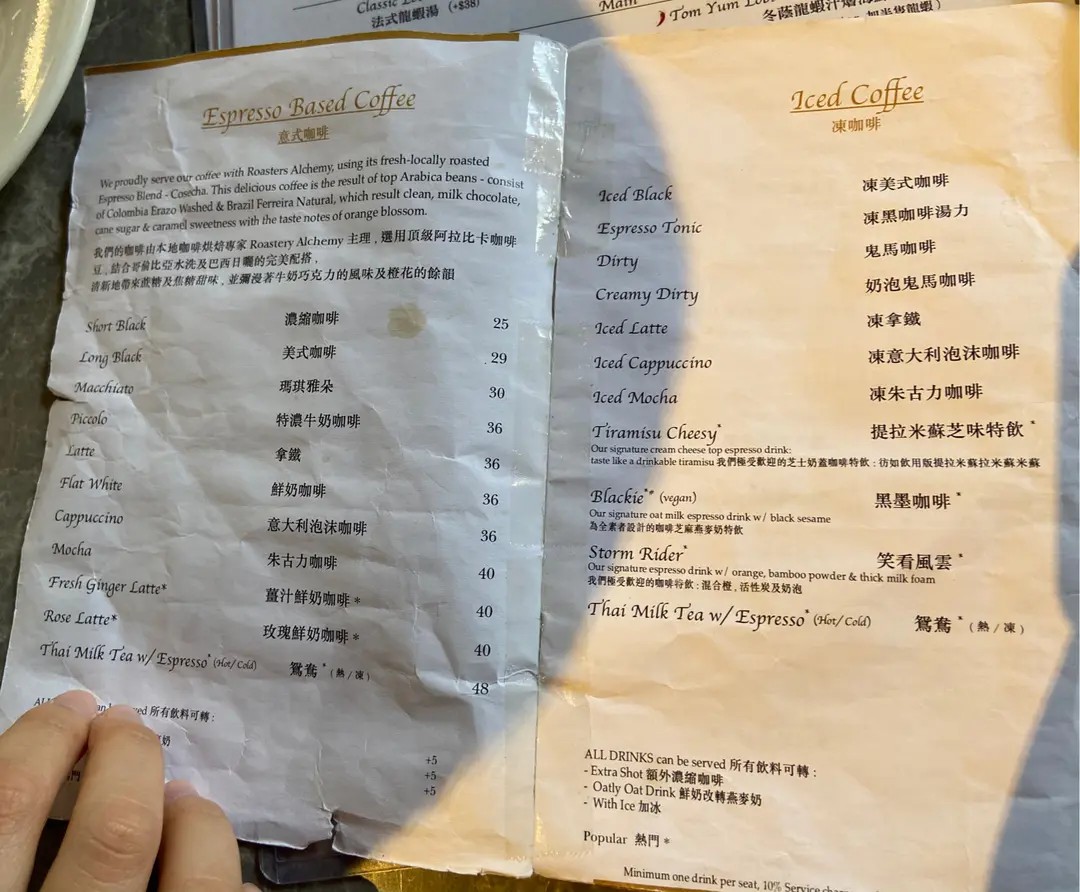 Classic
法式龍蝦湯 (+$38)
Main
Tom Yum
冬蔭龍蝦汁
Espresso Based Coffee
意式咖啡
We proudly serve our coffee with Roasters Alchemy, using its fresh-locally roasted
Espresso Blend - Cosecha. This delicious coffee is the result of top Arabica beans - consist
of Colombia Erazo Washed & Brazil Ferreira Natural, which result clean, milk chocolate,
cane sugar & caramel sweetness with the taste notes of orange blossom.
我們的咖啡由本地咖啡烘焙專家 Roastery Alchemy 主理，選用頂級阿拉比卡咖啡
豆，結合哥倫比亞水洗及巴西日曬的完美配搭，
清新地帶來蔗糖及焦糖甜味，並彌漫著牛奶巧克力的風味及橙花的餘韻
Short Black 濃縮咖啡 25
Long Black 美式咖啡 29
Macchiato 瑪琪雅朵 30
Piccolo 特濃牛奶咖啡 36
Latte 拿鐵 36
Flat White 鮮奶咖啡 36
Cappuccino 意大利泡沫咖啡 36
Mocha 朱古力咖啡 40
Fresh Ginger Latte* 薑汁鮮奶咖啡 * 40
Rose Latte* 玫瑰鮮奶咖啡 * 40
Thai Milk Tea w/ Espresso* (Hot/ Cold) 鴛鴦 * (熱 / 凍) 48
所有飲料可轉：
奶 +5
+5
門 +5
Iced Coffee
凍咖啡
Iced Black 凍美式咖啡
Espresso Tonic 凍黑咖啡湯力
Dirty 鬼馬咖啡
Creamy Dirty 奶泡鬼馬咖啡
Iced Latte 凍拿鐵
Iced Cappuccino 凍意大利泡沫咖啡
Iced Mocha 凍朱古力咖啡
Tiramisu Cheesy* 提拉米蘇芝味特飲 *
Our signature cream cheese top espresso drink:
taste like a drinkable tiramisu 我們極受歡迎的芝士奶蓋咖啡特飲：彷如飲用版提拉米蘇拉米蘇米蘇
Blackie** (vegan) 黑墨咖啡 *
Our signature oat milk espresso drink w/ black sesame
為全素者設計的咖啡芝麻燕麥奶特飲
Storm Rider* 笑看風雲 *
Our signature espresso drink w/ orange, bamboo powder & thick milk foam
我們極受歡迎的咖啡特飲：混合橙，活性炭及奶泡
Thai Milk Tea w/ Espresso* (Hot/ Cold) 鴛鴦 * (熱 / 凍)
ALL DRINKS can be served 所有飲料可轉：
- Extra Shot 額外濃縮咖啡
- Oatly Oat Drink 鮮奶改轉燕麥奶
- With Ice 加冰
Popular 熱門 *
Minimum one drink per seat, 10% Service